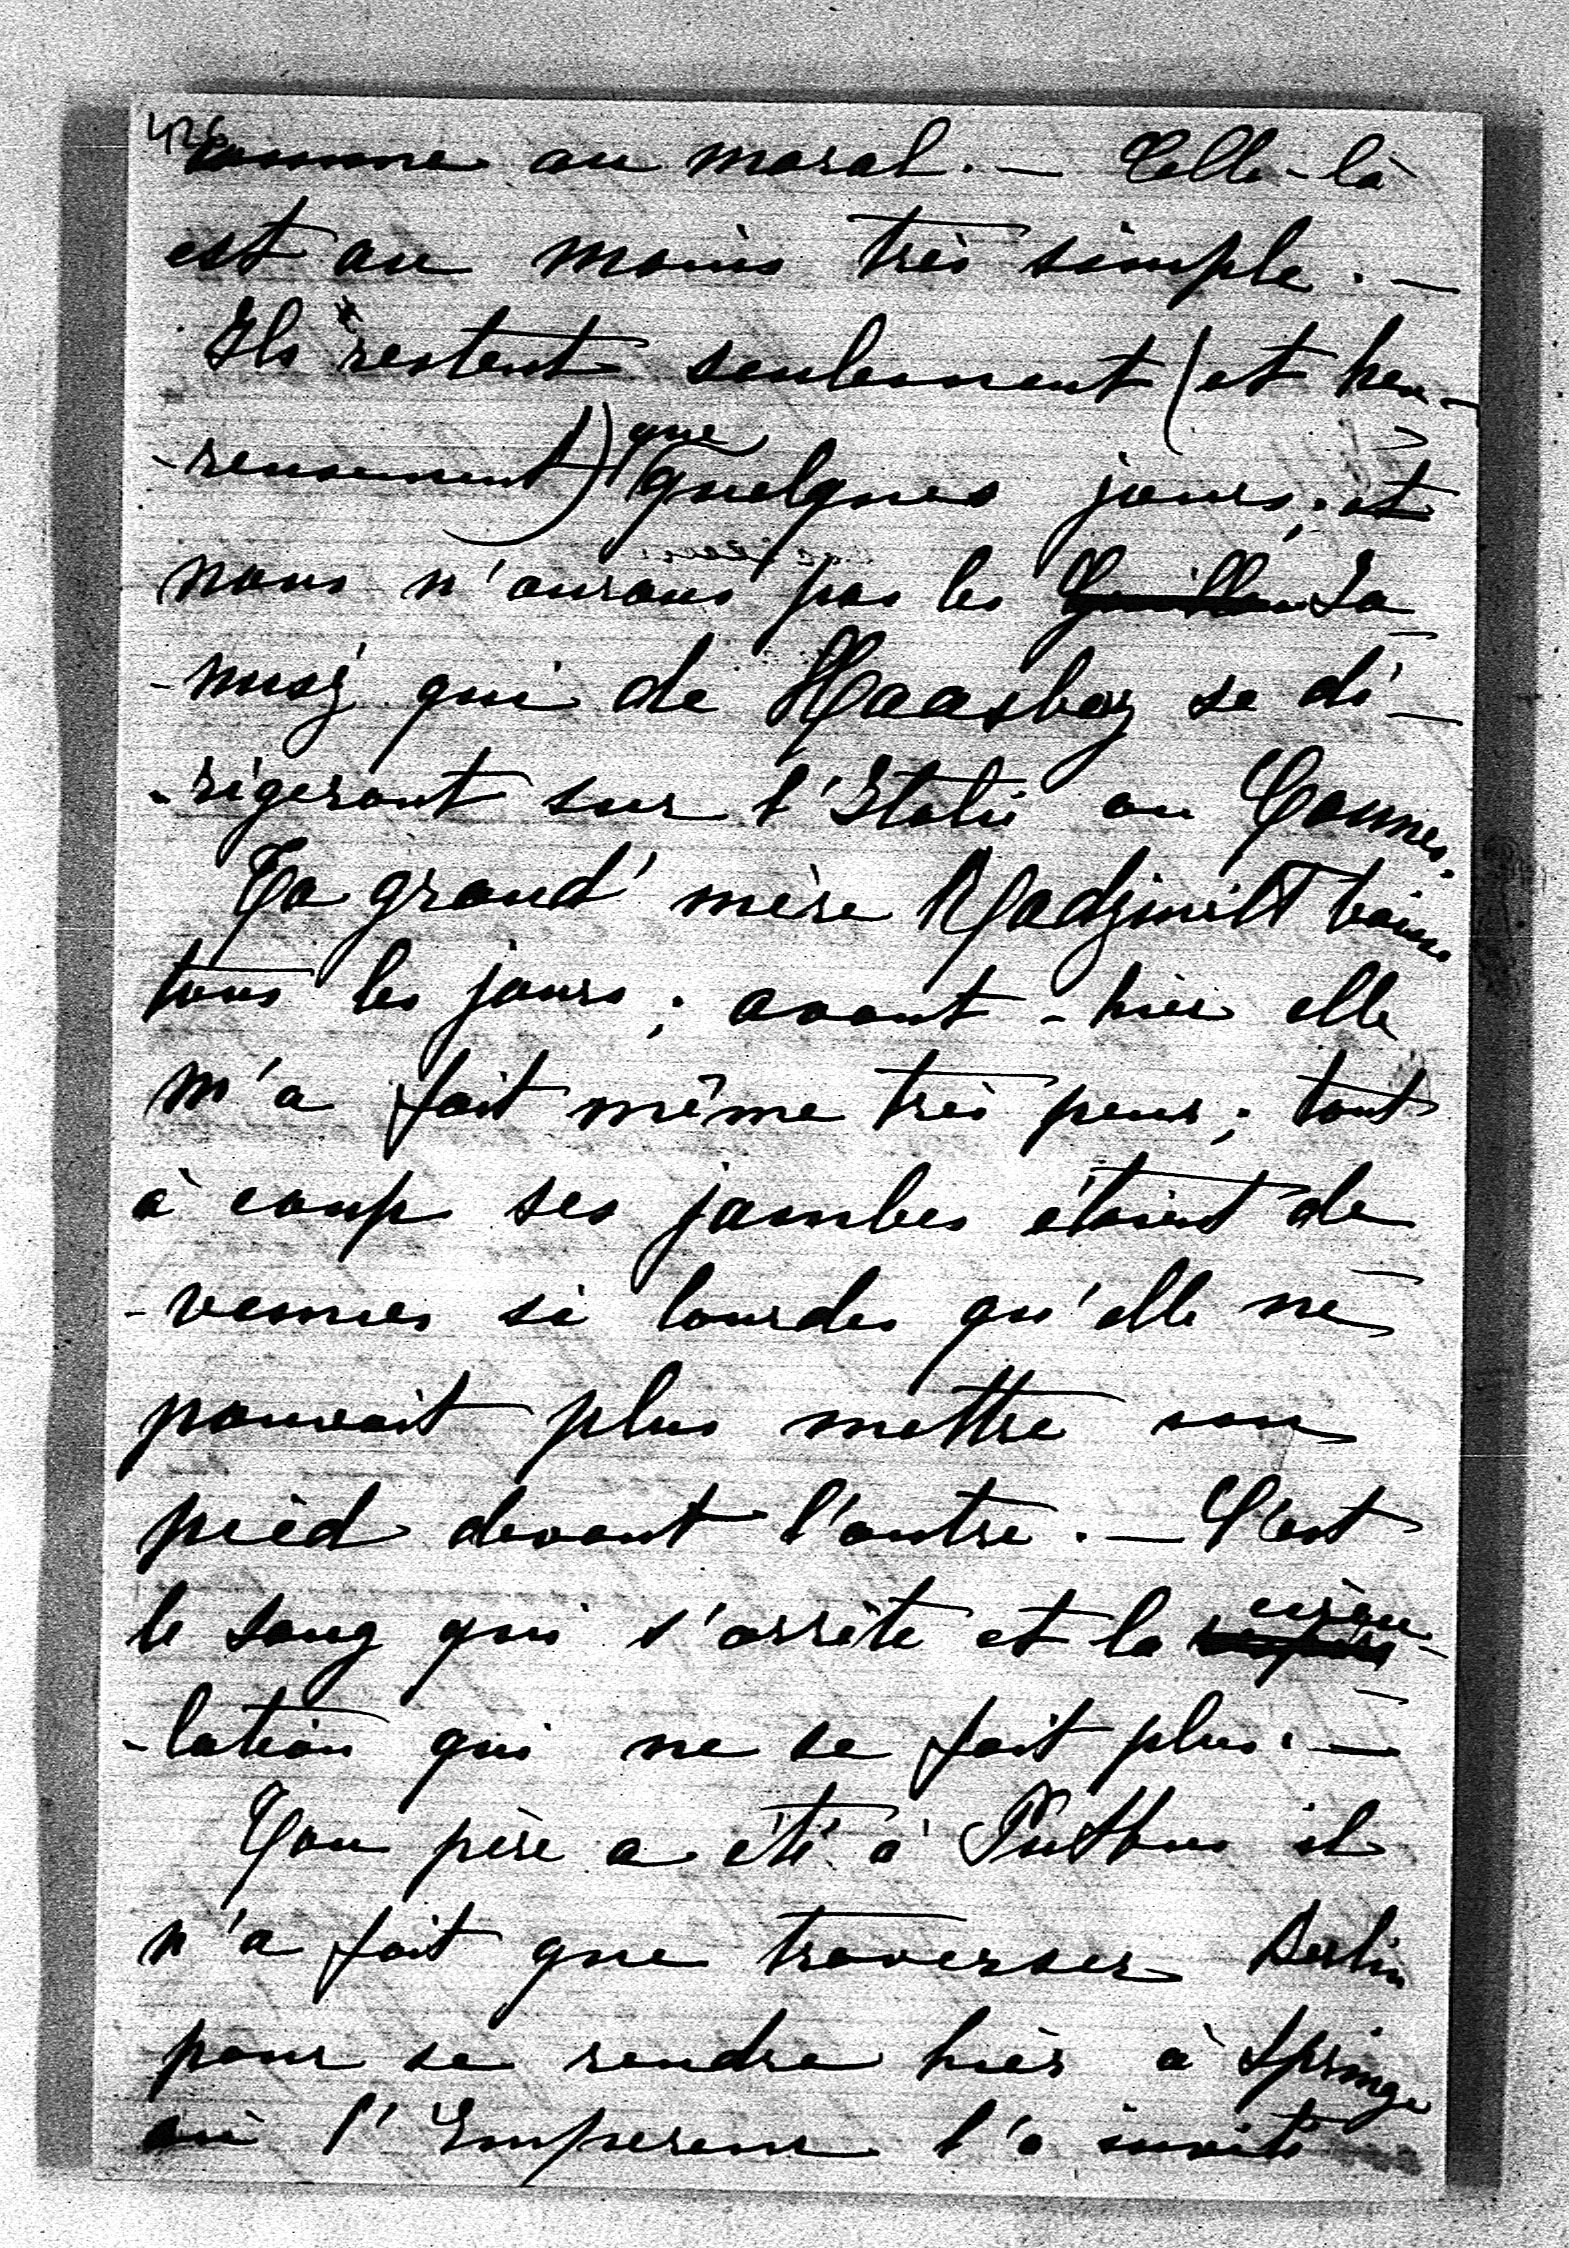 426
comme au moral. — Celle-là
est au moins très simple. —
Ils restent seulement (et heu-
-reusement) que quelques jours; et
nous n'aurons pas les La-
-nskoÿ qui de Haasberg se di-
-rigeront sur l'Italie ou Cannes.
Ta grand'mère Radziwill baisse
tous les jours; avant-hier elle
m'a fait même très peur; tout
à coup ses jambes étaient de
-venues si lourdes qu'elle ne
pouvait plus mettre son
pied devant l'autre. — C'est
le sang qui s'arrête et la circu-
-lation qui ne se fait plus. —
Ton père a été à Putbus il
n'a fait que traverser Berlin
pour se rendre hier à Springe
où l'Empereur l'a invité